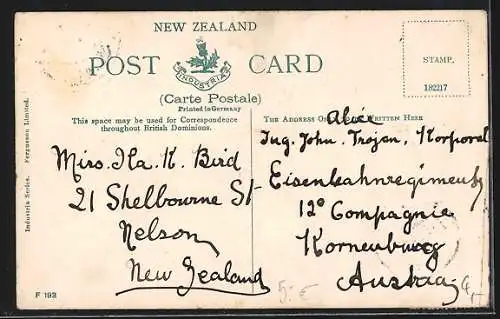 NEW ZEALAND
POST CARD
INDUSTRIA
(Carte Postale)
Printed in Germany
STAMP.
182217
This space may be used for Correspondence
throughout British Dominions.
THE ADDRESS ON WRITTEN HERE
Industria Series. Fergusson Limited.
Miss. Ila. K. Bird
21 Shelbourne St
Nelson
New Zealand
Ing. John. Trojan, Korporal
Eisenbahnregiment
12e Compagnie
Korneuburg
Austria
F 192
5.- €